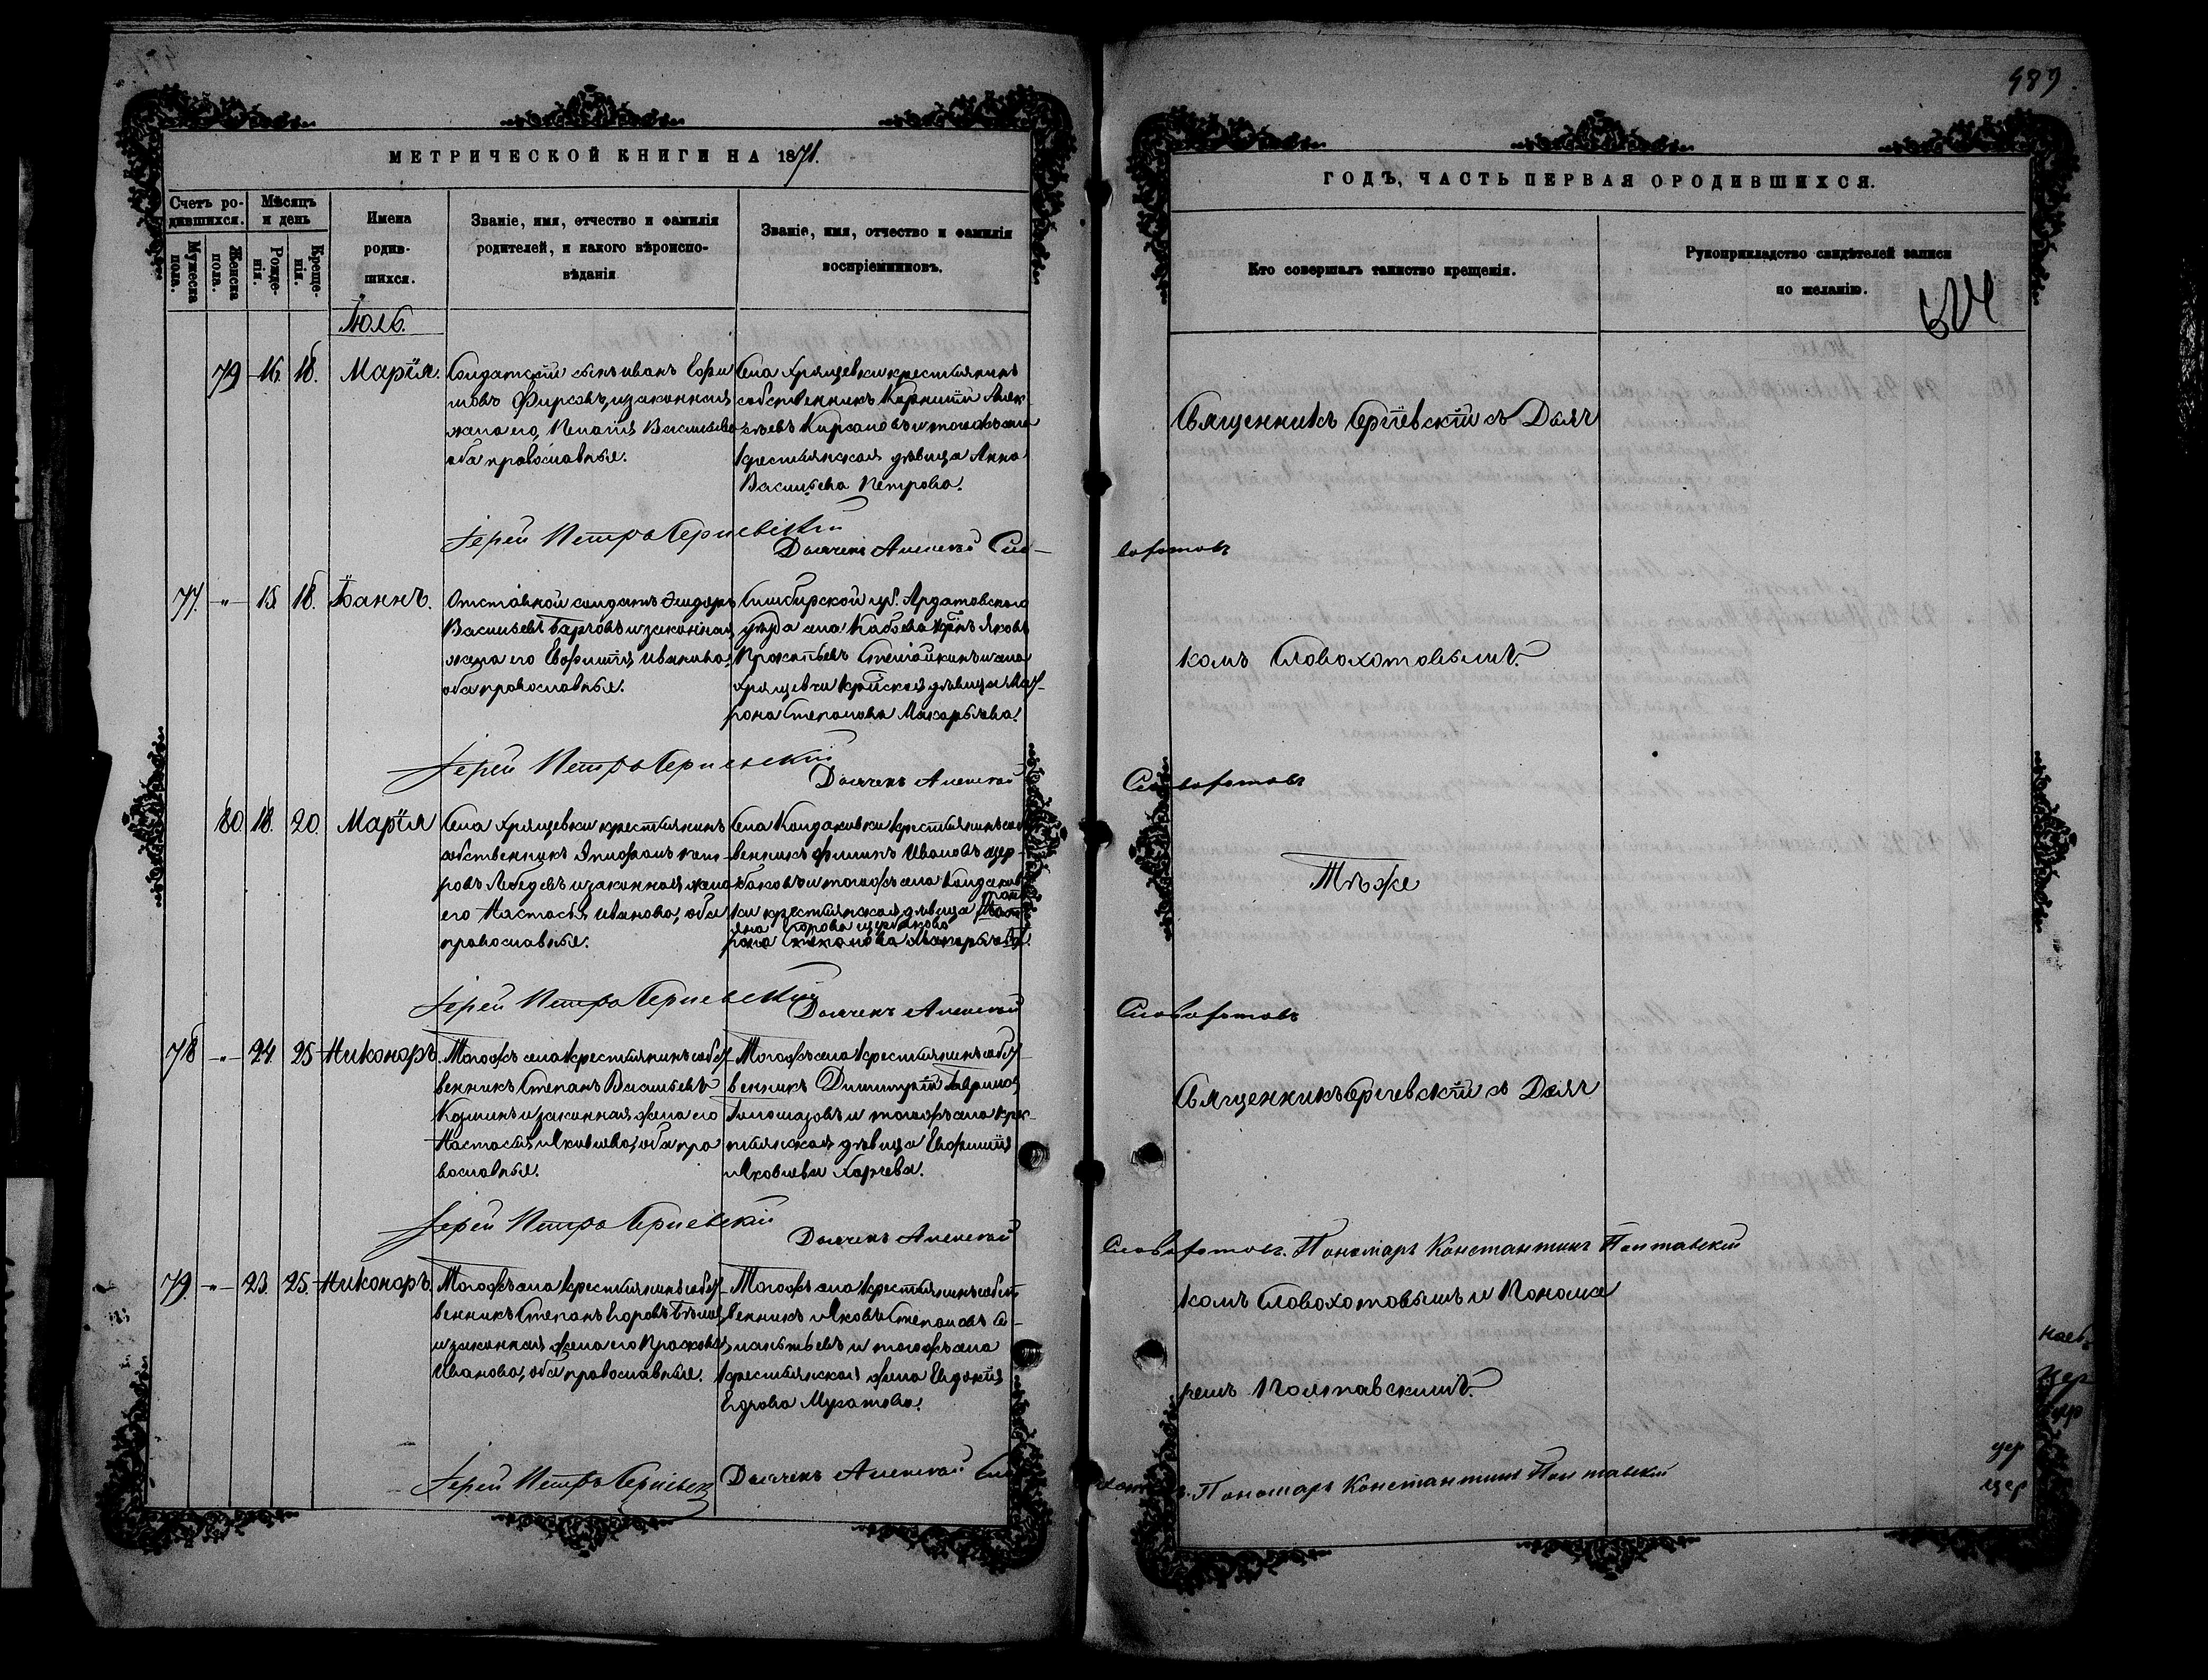 489
МЕТРИЧЕСКОЙ КНИГИ НА 1871.
Счетъ ро-
дившихся.
Мужеска
пола.
Женска
пола.
Мѣсяцъ
и день
Рожде-
нія.
Креще-
нія.
Имена
родив-
шихся.
Званіе, имя, отчество и фамилія
родителей, и какого вѣроиспо-
вѣданія
Званіе, имя, отчество и фамилія
воспріемниковъ.
Іюль.
79 16. 18. Марія.
Солдатскій сынъ Иванъ Ефи
мовъ Фирсовъ, и законная
жена его, Пелагія Васильева
оба православные.
Села Хрящевки крестьянинъ
собственникъ Корнилій Алек
сѣевъ Кирсановъ и тогожъ села
крестьянская дѣвица Анна
Васильева Петрова.
Іерей Петръ Сергіевскій
Дьячекъ Алексѣй Сло-
77. -"- 15. 18. Іоаннъ.
Отставной солдатъ
Васильевъ и законная
жена его Евфимія Иванова,
оба православные.
Симбирской губ. Ардатовскаго
уѣзда села Кабаева Яковъ
Прокопьевъ и села
Хрящевки дѣвица Мат-
рона Степанова Макарьева.
Іерей Петръ Сергіевскій
Дьячекъ Алексѣй
80. 18. 20. Марія
Села Хрящевки крестьянинъ
собственникъ Епифанъ Пет-
ровъ Лебедевъ и законная жена
его Настасья Иванова, оба
православные.
Села Кондаковки крестьянинъ собст
венникъ Филипъ Ивановъ Щер-
баковъ и тогожъ села Кондаков
ки крестьянская дѣвица
Егорова Щербакова
рона Степанова Макарьева
Іерей Петръ Сергіевскій
Дьячекъ Алексѣй
78 -"- 24. 25 Никоноръ.
Тогожъ села крестьянинъ собст-
венникъ Степанъ Васильевъ
и законная жена его
Настасья Яковлева, оба пра
вославные.
Тогожъ села крестьянинъ собст-
венникъ Димитрій Гавриловъ
и тогожъ села кре-
стьянская дѣвица Евфимія
Яковлева
Іерей Петръ Сергіевскій
Дьячекъ Алексѣй
79. -"- 23. 25. Никоноръ.
Тогожъ села крестьянинъ собст-
венникъ Степанъ Егоровъ
и законная жена его Прасковья
Иванова, оба православные.
Тогожъ села крестьянинъ собст
венникъ Яковъ Степановъ
и тогожъ села
крестьянская жена Евдокія
Егорова Муратова.
Іерей Петръ Сергіевск
Дьячекъ Алексѣй Сло
ГОДЪ, ЧАСТЬ ПЕРВАЯ О РОДИВШИХСЯ.
Кто совершалъ таинство крещенія.
Рукоприкладство свидѣтелей записи
по желанію.
Священникъ Сергіевскій съ Дьяч
вохотовъ
комъ Словохотовымъ.
Словохотовъ
Тѣ же
Словохотовъ
Священникъ Сергіевскій съ Дьяч
Словохотовъ. Пономарь Константинъ Полтавскій
комъ Словохотовымъ и Понома
ремъ Полтавскимъ.
Пономарь Константинъ Полтавскій